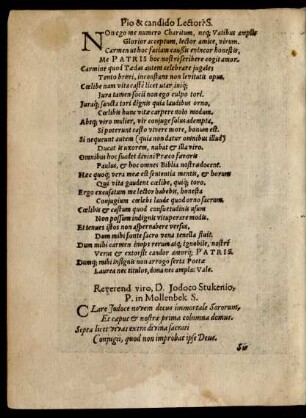 Pio & candido Lectori S.
NOn ego me numero Charitum, neq; Vatibus amplis
Glorior acceptum, lector amice, virum.
Carmen ut hoc faciam caussis evincor honestis,
Me PATRIS hoc nostri scribere cogit amor.
Carmine quod Tædas autem celebrare jugales
Tanto breri, inconstans non levitatis opus.
Cœlibe nam vita castè licet utar, iniq;
Jura tamen socii non ego culpo tori.
Juraq; sancta tori dignis quia laudibus orno,
Cœlibis hunc vitæ carpere nolo modum.
Absq; viro mulier, vir conjuge salvus adempta,
Si poterunt casto vivere more, bonum est.
Si nequeunt autem (quia non datur omnibus illud)
Ducat is uxorem, nubat & illa viro.
Omnibus hoc suadet divini Præco favoris
Paulus, & hoc omnes Biblia nostra docent.
Hæc quoq; vera meæ est sententia mentis, & horum
Qui vita gaudent cœlibe, quiq; toro.
Ergo excusatum me lector habebit, honesta
Conjugium cœlebs laude quod orno sacrum.
Cœlibis & castum quod consortudinis usum
Non possum indignis vituperare modis.
Et tenues istos non aspernabere versus,
Dum mihi fonte sacro vena tenella fluit.
Dum mihi carmen inops rerum atq; ignobile, nostri
Verus & extorsit candor amorq; PATRIS.
Dumq; mihi insignis non arrogo serta Poetæ
Laurea nec titulos, dona nec ampla: Vale.
Reverend viro, D. Jodoco Stukenio,
P. in Mollenbek S.
CLare Jodoce novem decus immortale Sororum,
Et caput & nostræ prima columna domus.
Septa licet vivas extra divina sacrati
Conjugii, quod non improbat ipse Deus.
Sis